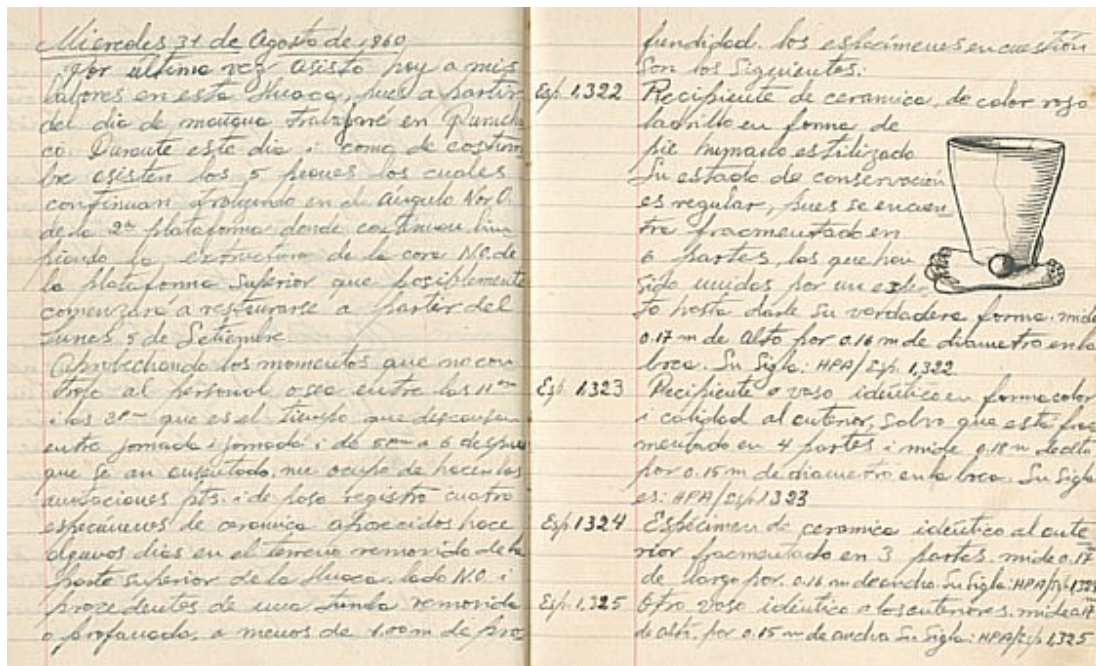 Miercoles 31 de Agosto de 1960
Por ultima vez asisto hoy a mis
labores en esta Huaca, pues a partir
del dia de mañana trabajaré en
Durante este dia i como de costum
bre asisten los 5 peones los cuales
continuan trabajando en el ángulo Nor O.
de la 2ª plataforma donde continuan lim
piando la estructura de la cara N.O. de
la plataforma Superior que posiblemente
comenzará a restaurarse a partir del
Lunes 5 de Setiembre.
Aprobechando los momentos que no con
trolo al personal o sea entre las 11 am
i las 3 pm que es el tiempo que descansan
entre jornada i jornada i de 5 pm a 6 despues
que se an ausentado, me ocupo de hacer las
anotaciones pts. i de paso registro cuatro
especimenes de ceramica aparecidos hace
algunos dias en el terreno removido de la
parte superior de la Huaca. lado N.O. i
procedentes de una tumba removida
o profanada, a menos de 1.00 m de pro
fundidad. Los especímenes en cuestión
Son los Siguientes:
Esp. 1,322 Recipiente de ceramica, de color rojo
ladrillo en forma de
pie humano estilizado
Su estado de conservación
es regular, pues se encuen
tra fragmentado en
6 partes, las que han
sido unidas por un
to hasta darle su verdadera forma. mide
0.17 m de alto por 0.16 m de diametro en la
boca. Su Sigla: HPA/Esp. 1,322
Esp. 1,323 Recipiente o vaso idéntico en forma color
i calidad al anterior, salvo que está frag
mentado en 4 partes i mide 0.18 m de alto
por 0.15 m de diametro en la boca. Su Sigla
es: HPA/Esp. 1323
Esp. 1324 Espécimen de ceramica idéntico al ante
rior fragmentado en 3 partes. mide 0.17
de largo por 0.16 m de ancho. Su Sigla: HPA/Esp. 1324
Esp. 1,325 Otro vaso idéntico a los anteriores. mide 0.17
de alto. por 0.15 m de ancho Su Sigla: HPA/Esp. 1,325